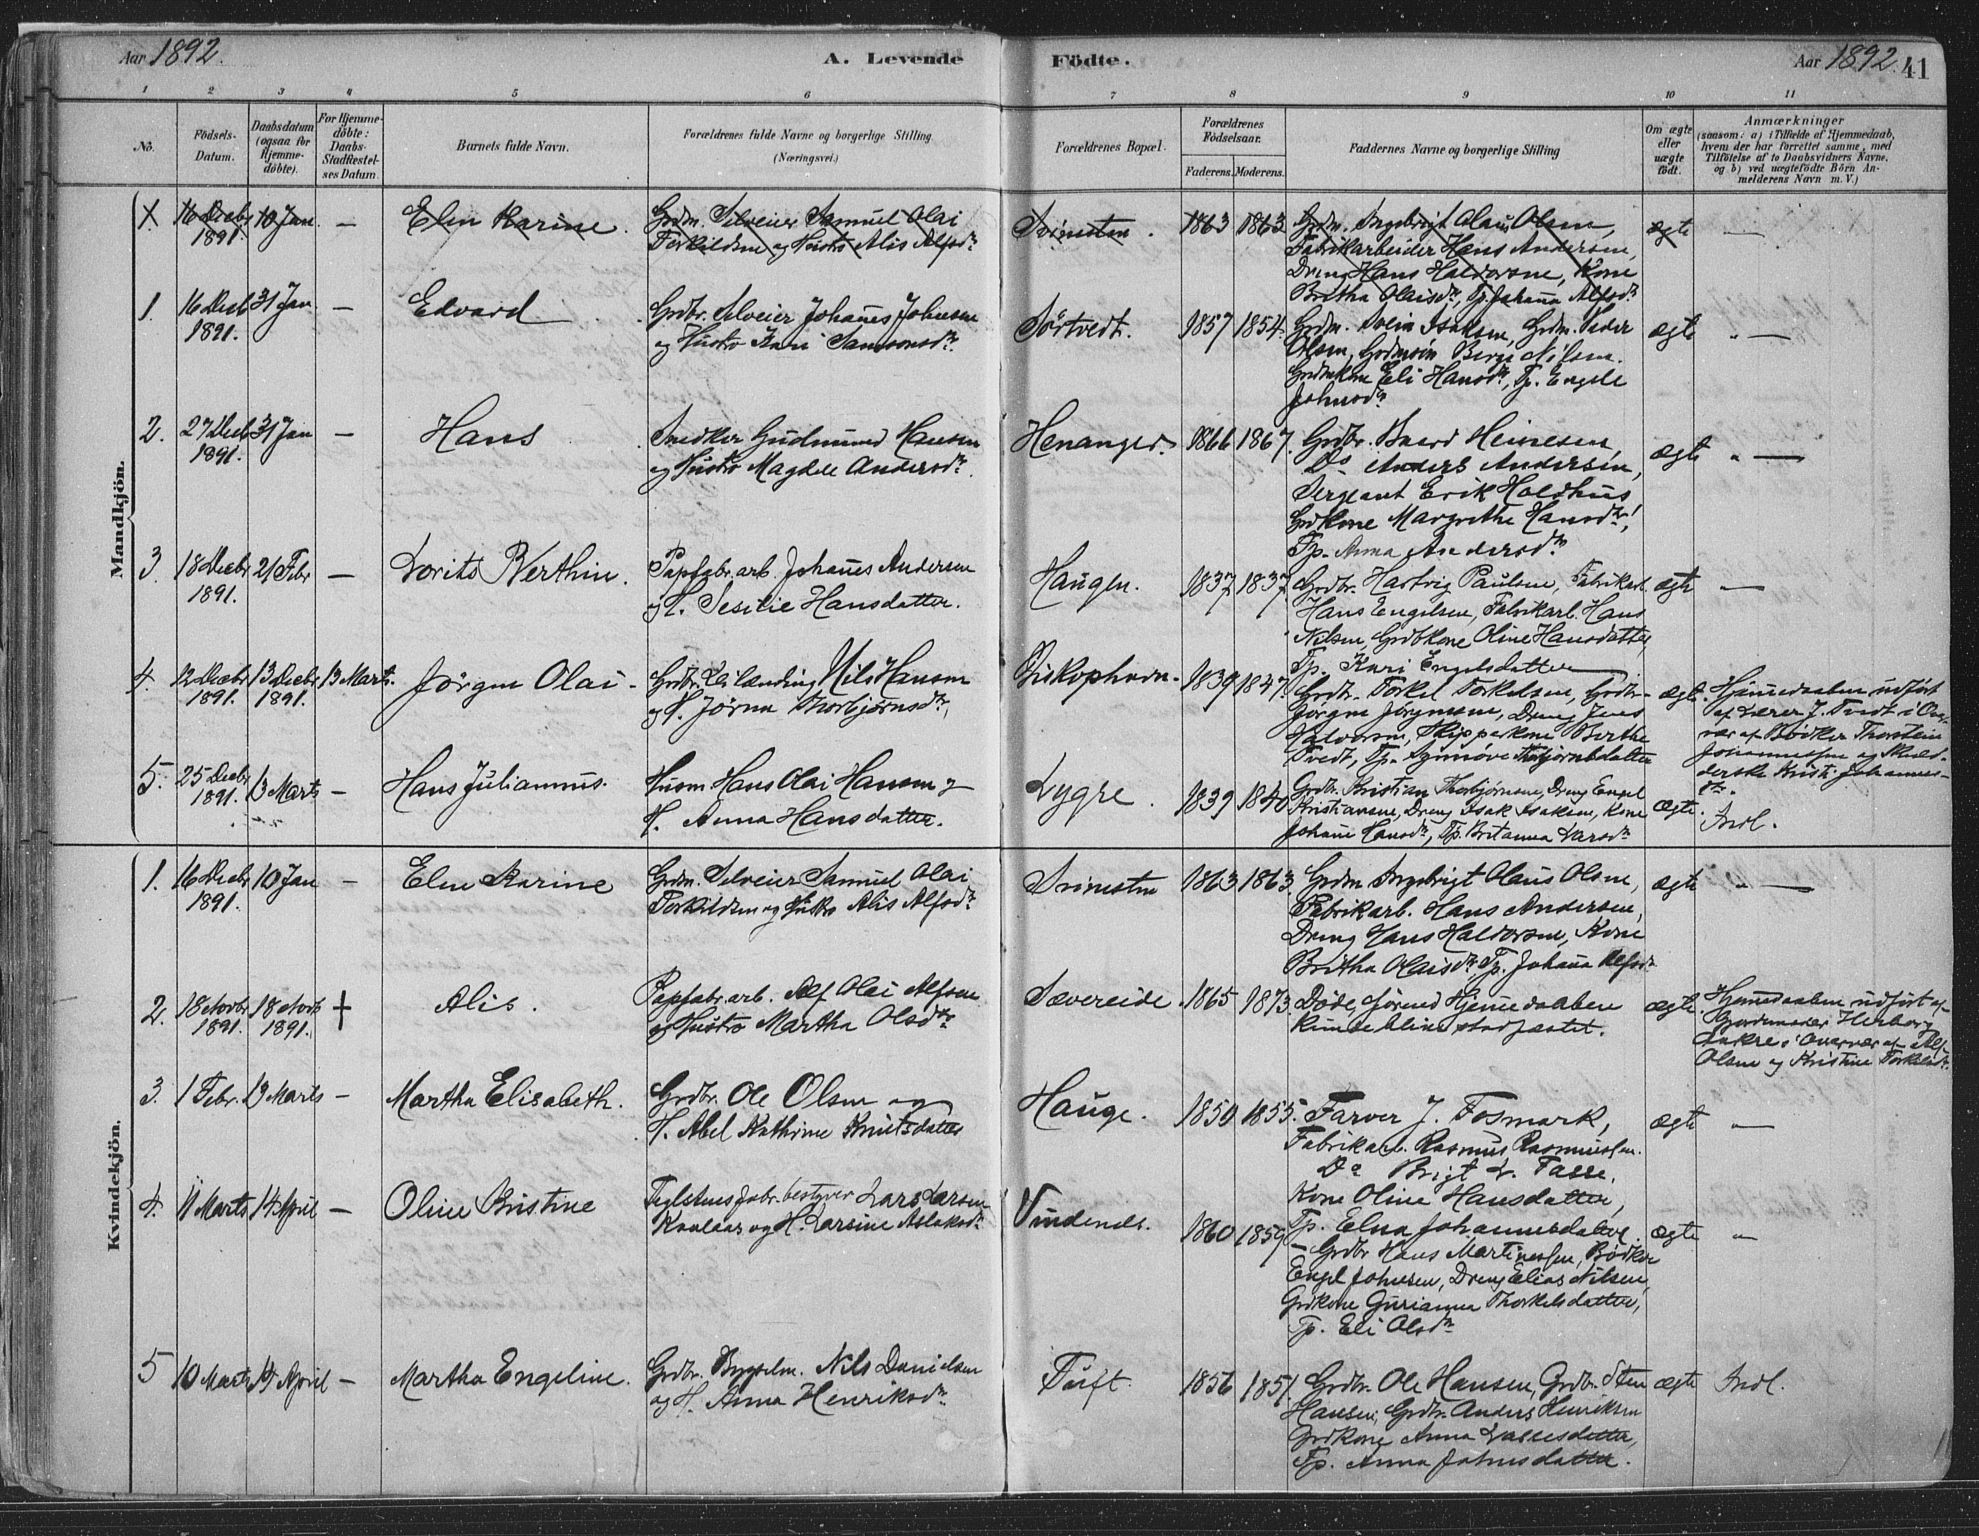 Aar 1892.
A. Levende
Födte.
Aar 1892.
41
1 2 3 4 5 6 7 8 9 10 11
No.
Födsels-
Datum.
Daabsdatum
(ogsaa for
Hjemme-
döbte).
For Hjemme-
döbte:
Daabs-
Stadfæstel-
ses Datum.
Barnets fulde Navn.
Forældrenes fulde Navne og borgerlige Stilling
(Næringsvei.)
Forældrenes Bopæl.
Forældrenes
Födselsaar.
Faderens. Moderens.
Faddernes Navne og borgerlige Stilling
Om ægte
eller
uægte
födt.
Anmærkninger
(saasom: a) i Tilfælde af Hjemmedaab,
hvem der har forrettet samme, med
Tilföielse af to Daabsvidners Navne,
og b) ved uægtefödte Börn An-
melderens Navn m. V.)
Mandkjön.
1. 16 Decbr 1891. 10 Jan. — Elen Karine.
Grdm. Selveier Samuel Olai
Torkildsen og Hustro Alis Alfsdtr
Svinestøn. 1863 1863
Grdm. Ingebrigt Olaus Olsen,
Fabrikarbeider Hans Andersen,
Dreng Hans Haldorsen, Kone
Britha Olaisdtr, Tp. Johanna Alfsdtr
ægte —
1. 16 Decb 1891. 31 Jan — Edvard
Grdbr. Selveier Johannes Johnsen
og Hustro Kari Samsonsdtr
Sörtvedt. 1857 1854.
Grdm. Svein Isaksen, Grdm. Peder
Olsen, Grdmsön Berge Nilsen.
Grdmkone Eli Hansdtr, Tp. Engele
Johnsdtr
ægte " —
2. 27 Decb 1891. 31 Jan — Hans
Snedker Gudmund Hansen
og Hustro Magdele Andersdtr.
Henanger. 1866 1867.
Grdbr. Baard Heinesen,
Do Anders Andersen,
Sergeant Erik Holdhus,
Grdkone Margrethe Hansdtr,
Tp. Anna Andersdtr
ægte " —
3. 18 Decbr 1891. 21 Febr — Lorits Berthin.
Papfabr.arb. Johannes Andersen
og H. Sesilie Hansdatter.
Haugen. 1837 1837.
Grdbr. Hartvig Paulsen, Fabrikarb.
Hans Engelsen, Fabrikarb. Hans
Nilsen, Grdbkone Oline Hansdatter,
Tp. Kari Engelsdatter
ægte —
4. 12 Decbr 1891. 13 Decbr 1891. 13 Marts. Jörgen Olai.
Grdbr. Leilænding Nils Hansen
og H. Jörna Thorbjörnsdtr,
Biskophavn. 1839 1847.
Grdbr. Torkel Torkelsen, Grdbr.
Jörgen Jörgensen, Dreng Jens
Halvorsen, Skipperkone Berthe
Tvedt, Tp. Synnöve Thorbjörnsdatter
ægte.
Hjemmedaaben udfört
af Lærer J. Tvedt i Over-
vær af Bödker Thorstein
Johannessen og Skræd-
derske Kristi Johannes-
dtr.
5. 25 Decbr 1891. 13 Marts — Hans Julianus.
Husm. Hans Olai Hansen og
H. Anna Hansdatter.
Lygre. 1839 1840
Grdbr. Kristian Thorbjörnsen, Dreng Engel
Kristiansen, Dreng Isak Isaksen, Kone
Johanne Hansdtr, Tp. Britanna Larsdtr
ægte. Indl.
Kvindekjön.
1. 16 Decbr 1891. 10 Jan — Elen Karine
Grdm. Selveier Samuel Olai
Torkildsen og Hustro Alis Alfsdtr
Svinestøn 1863 1863.
Grdm Ingebrigt Olaus Olsen,
Fabrikarb. Hans Andersen,
Dreng Hans Haldorsen, Kone
Britha Olaisdtr Tp. Johanna Alfsdtr
ægte " —
2. 18 Novbr 1891. 18 Novb 1891. † Alis.
Papfabr.arb. Alf Olai Alfsen
og Hustro Martha Olsdtr
Sævereide 1865 1873
Döde, förend Hjemmedaaben
kunde blive stadfæstet.
ægte.
Hjemmedaaben udfört af
Gjordemoder Herborg
i Overvær af Alf
Olsen og Kristine Torkelsdtr.
3. 1 Febr. 13 Marts — Martha Elisabeth.
Grdbr. Ole Olsen og
H. Abel Kathrine Knutsdatter
Hauge. 1850 1855.
Farver J. Fosmark,
Fabrikarb. Rasmus Rasmussen.
Do Brigt L. Tasse,
Kone Oline Hansdatter,
Tp. Elna Johannesdatter.
ægte —
4. 11 Marts 14 April — Oline Kristine
Teglstensfabr.bestyrer Lars Larsen
og H. Larsine Aslaksdtr
Vindenes. 1860 1859
— Grdbr Hans Martinessen, Bödker
Engel Johnsen, Dreng Elias Nilsen,
Grdkone Gurianna Thorkelsdatter,
Tp. Eli Olsdtr
ægte "
5 10 Marts 14 April — Martha Engeline.
Grdbr. Bygselm. Nils Danielsen
og H. Anna Henriksdtr
Tuft. 1856 1851.
Grdbr. Ole Hansen, Grdbr. Sten
Hansen, Grdbr. Anders Henriksen
Grdkone Anna Lassesdatter,
Tp. Anna Johnsdatter.
ægte Indl.